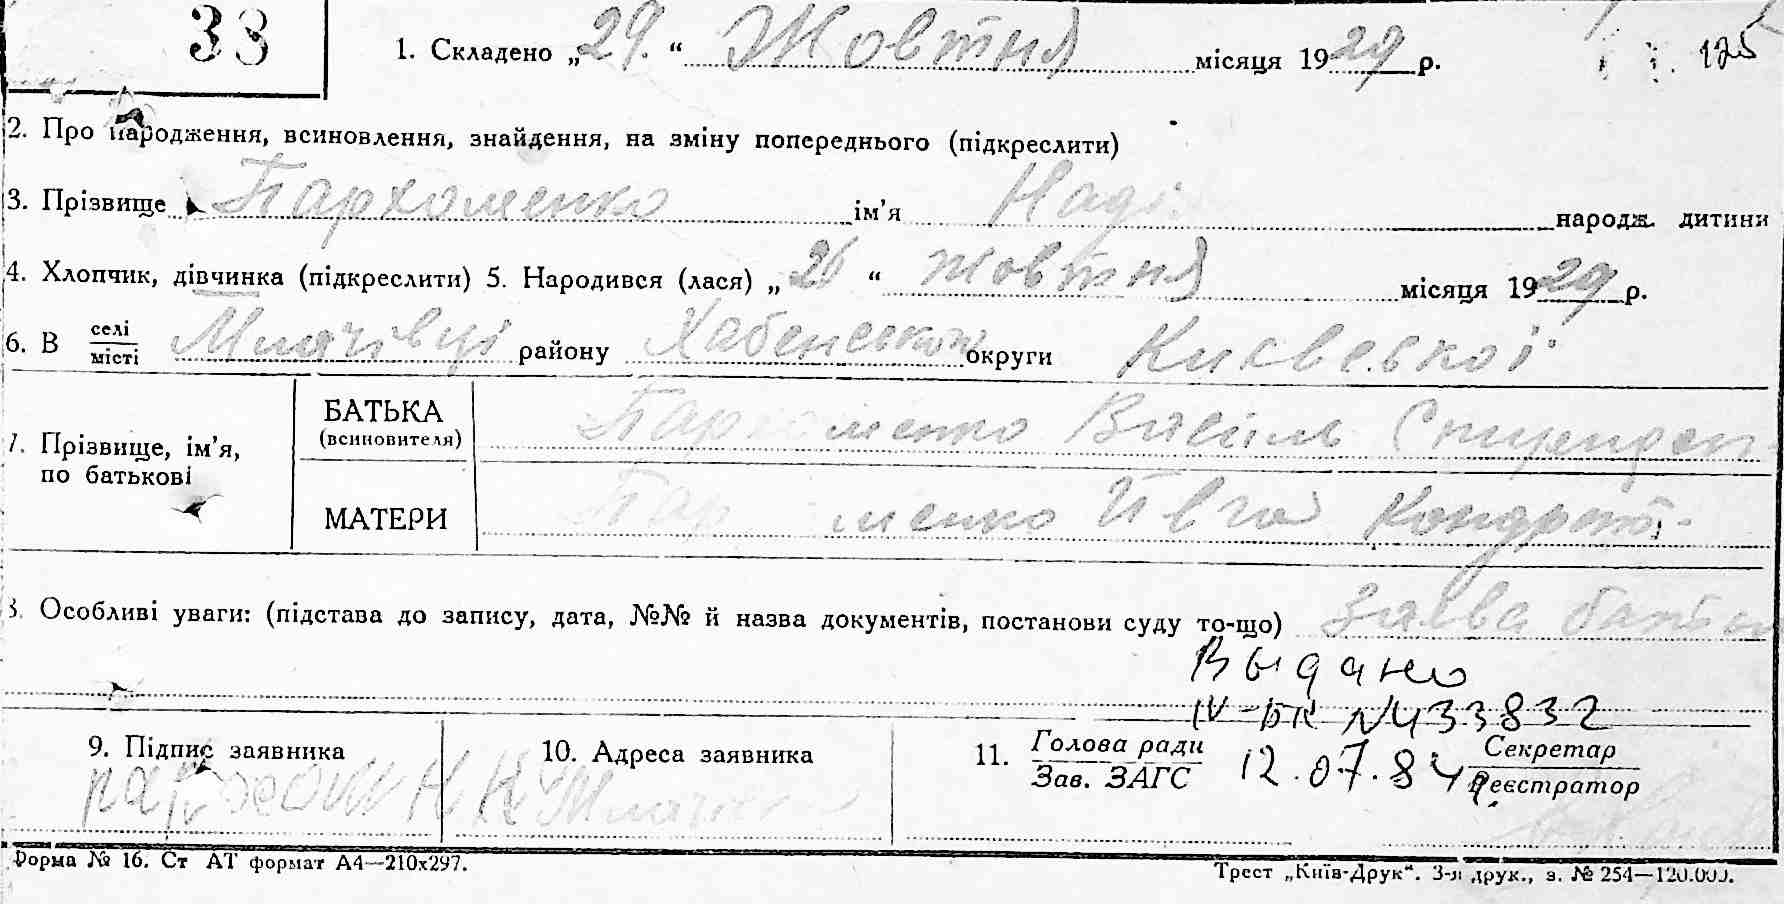 33
1. Складено „29.“ Жовтня місяця 1929 р.
125
2. Про народження, всиновлення, знайдення, на зміну попереднього (підкреслити)
3. Прізвище Пархоменко ім’я Надія народж. дитини
4. Хлопчик, дівчинка (підкреслити) 5. Народився (лася) „26“ жовтня місяця 1929 р.
6. В селі
місті
Млячівці району Хабенського округи Києвської
7. Прізвище, ім’я,
по батькові
БАТЬКА
(всиновителя)
Пархоменко Василь
МАТЕРИ
Пархоменко Ївга Кондрат.
8. Особливі уваги: (підстава до запису, дата, №№ й назва документів, постанови суду то-що) Заява батька
Выдано
IV-БК N433832
9. Підпис заявника
10. Адреса заявника
11. Голова ради
Зав. ЗАГС
12.07.84
Секретар
Реєстратор
Форма № 16. Ст АТ формат А4—210х297.
Трест „Київ-Друк“. 3-я друк., з. № 254—120.000.